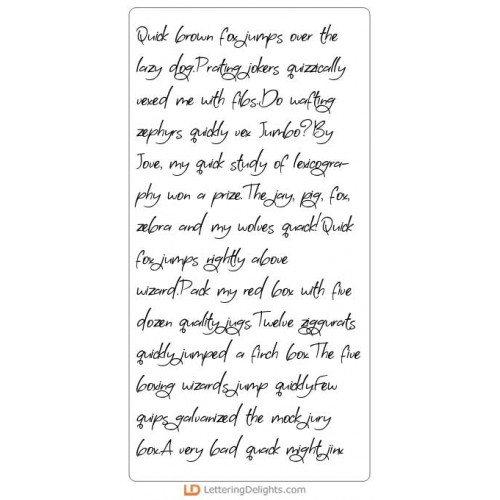 Quick brown fox jumps over the
lazy dog.Prating jokers quizzically
vexed me with fibs.Do wafting
zephyrs quickly vex Jumbo?By
Jove, my quick study of lexicogra-
phy won a prize.The jay, pig, fox,
zebra and my wolves quack!Quick
fox jumps nightly above
wizard.Pack my red box with five
dozen quality jugs.Twelve ziggurats
quickly jumped a finch box.The five
boxing wizards jump quickly.Few
quips galvanized the mock jury
box.A very bad quack might jinx
LD LetteringDelights.com